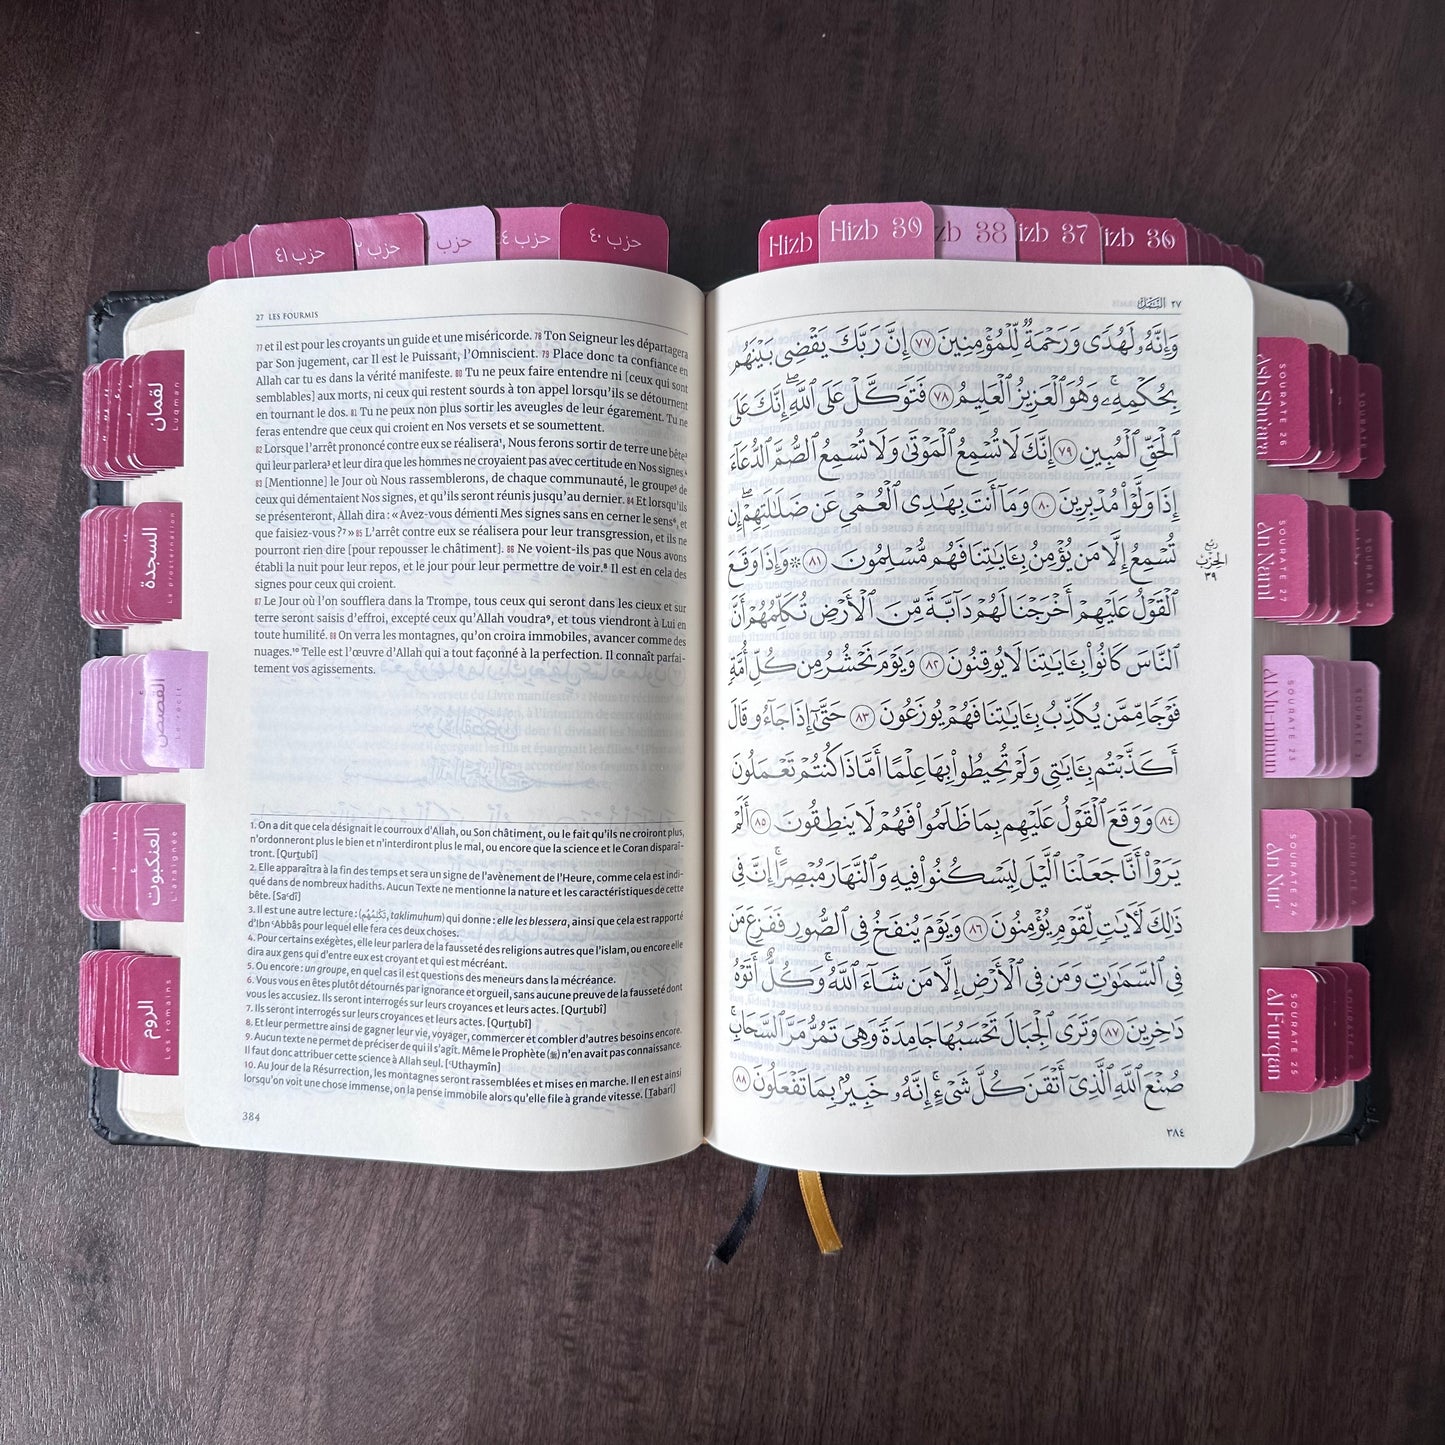 حزب ٤١
حزب
حزب
حزب
حزب ٤٠
Hizb
Hizb 39
38
37
36
لقمان
Luqman
السجدة
La prosternation
القصص
Le récit
العنكبوت
L'araignée
الروم
Les romains
27 LES FOURMIS
77 et il est pour les croyants un guide et une miséricorde. 78 Ton Seigneur les départagera
par Son jugement, car Il est le Puissant, l'Omniscient. 79 Place donc ta confiance en
Allah car tu es dans la vérité manifeste. 80 Tu ne peux faire entendre ni [ceux qui sont
semblables] aux morts, ni ceux qui restent sourds à ton appel lorsqu'ils se détournent
en tournant le dos. 81 Tu ne peux non plus sortir les aveugles de leur égarement. Tu ne
feras entendre que ceux qui croient en Nos versets et se soumettent.
82 Lorsque l'arrêt prononcé contre eux se réalisera¹, Nous ferons sortir de terre une bête²
qui leur parlera³ et leur dira que les hommes ne croyaient pas avec certitude en Nos signes.⁴
83 [Mentionne] le Jour où Nous rassemblerons, de chaque communauté, le groupe⁵ de
ceux qui démentaient Nos signes, et qu'ils seront réunis jusqu'au dernier. 84 Et lorsqu'ils
se présenteront, Allah dira : «Avez-vous démenti Mes signes sans en cerner le sens⁶, et
que faisiez-vous ?⁷ » 85 L'arrêt contre eux se réalisera pour leur transgression, et ils ne
pourront rien dire [pour repousser le châtiment]. 86 Ne voient-ils pas que Nous avons
établi la nuit pour leur repos, et le jour pour leur permettre de voir.⁸ Il est en cela des
signes pour ceux qui croient.
87 Le Jour où l'on soufflera dans la Trompe, tous ceux qui seront dans les cieux et sur
terre seront saisis d'effroi, excepté ceux qu'Allah voudra⁹, et tous viendront à Lui en
toute humilité. 88 On verra les montagnes, qu'on croira immobiles, avancer comme des
nuages.¹⁰ Telle est l'œuvre d'Allah qui a tout façonné à la perfection. Il connaît parfai-
tement vos agissements.
1. On a dit que cela désignait le courroux d'Allah, ou Son châtiment, ou le fait qu'ils ne croiront plus,
n'ordonneront plus le bien et n'interdiront plus le mal, ou encore que la science et le Coran disparaî-
tront. [Qurṭubî]
2. Elle apparaîtra à la fin des temps et sera un signe de l'avènement de l'Heure, comme cela est indi-
qué dans de nombreux hadiths. Aucun Texte ne mentionne la nature et les caractéristiques de cette
bête. [Sa'dî]
3. Il est une autre lecture : (تَكْلِمُهُمْ, taklimuhum) qui donne : elle les blessera, ainsi que cela est rapporté
d'Ibn 'Abbâs pour lequel elle fera ces deux choses.
4. Pour certains exégètes, elle leur parlera de la fausseté des religions autres que l'islam, ou encore elle
dira aux gens qui d'entre eux est croyant et qui est mécréant.
5. Ou encore : un groupe, en quel cas il est questions des meneurs dans la mécréance.
6. Vous vous en êtes plutôt détournés par ignorance et orgueil, sans aucune preuve de la fausseté dont
vous les accusiez. Ils seront interrogés sur leurs croyances et leurs actes. [Qurṭubî]
7. Ils seront interrogés sur leurs croyances et leurs actes. [Qurṭubî]
8. Et leur permettre ainsi de gagner leur vie, voyager, commercer et combler d'autres besoins encore.
9. Aucun texte ne permet de préciser de qui il s'agit. Même le Prophète (ﷺ) n'en avait pas connaissance.
Il faut donc attribuer cette science à Allah seul. ['Uthaymîn]
10. Au Jour de la Résurrection, les montagnes seront rassemblées et mises en marche. Il en est ainsi
lorsqu'on voit une chose immense, on la pense immobile alors qu'elle file à grande vitesse. [Tabarî]
384
٢٧ النمل
وَإِنَّهُۥ لَهُدًى وَرَحْمَةٌ لِّلْمُؤْمِنِينَ ٧٧ إِنَّ رَبَّكَ يَقْضِى بَيْنَهُم
بِحُكْمِهِۦۚ وَهُوَ ٱلْعَزِيزُ ٱلْعَلِيمُ ٧٨ فَتَوَكَّلْ عَلَى ٱللَّهِۖ إِنَّكَ عَلَى
ٱلْحَقِّ ٱلْمُبِينِ ٧٩ إِنَّكَ لَا تُسْمِعُ ٱلْمَوْتَىٰ وَلَا تُسْمِعُ ٱلصُّمَّ ٱلدُّعَآءَ
إِذَا وَلَّوْا۟ مُدْبِرِينَ ٨٠ وَمَآ أَنتَ بِهَٰدِى ٱلْعُمْىِ عَن ضَلَٰلَتِهِمْۖ إِن
تُسْمِعُ إِلَّا مَن يُؤْمِنُ بِـَٔايَٰتِنَا فَهُم مُّسْلِمُونَ ٨١ ۞ وَإِذَا وَقَعَ
ٱلْقَوْلُ عَلَيْهِمْ أَخْرَجْنَا لَهُمْ دَآبَّةً مِّنَ ٱلْأَرْضِ تُكَلِّمُهُمْ أَنَّ
ٱلنَّاسَ كَانُوا۟ بِـَٔايَٰتِنَا لَا يُوقِنُونَ ٨٢ وَيَوْمَ نَحْشُرُ مِن كُلِّ أُمَّةٍ
فَوْجًا مِّمَّن يُكَذِّبُ بِـَٔايَٰتِنَا فَهُمْ يُوزَعُونَ ٨٣ حَتَّىٰٓ إِذَا جَآءُو قَالَ
أَكَذَّبْتُم بِـَٔايَٰتِى وَلَمْ تُحِيطُوا۟ بِهَا عِلْمًا أَمَّاذَا كُنتُمْ تَعْمَلُونَ
٨٤ وَوَقَعَ ٱلْقَوْلُ عَلَيْهِم بِمَا ظَلَمُوا۟ فَهُمْ لَا يَنطِقُونَ ٨٥ أَلَمْ
يَرَوْا۟ أَنَّا جَعَلْنَا ٱلَّيْلَ لِيَسْكُنُوا۟ فِيهِ وَٱلنَّهَارَ مُبْصِرًاۚ إِنَّ فِى
ذَٰلِكَ لَـَٔايَٰتٍ لِّقَوْمٍ يُؤْمِنُونَ ٨٦ وَيَوْمَ يُنفَخُ فِى ٱلصُّورِ فَفَزِعَ مَن
فِى ٱلسَّمَٰوَٰتِ وَمَن فِى ٱلْأَرْضِ إِلَّا مَن شَآءَ ٱللَّهُۚ وَكُلٌّ أَتَوْهُ
دَٰخِرِينَ ٨٧ وَتَرَى ٱلْجِبَالَ تَحْسَبُهَا جَامِدَةً وَهِىَ تَمُرُّ مَرَّ ٱلسَّحَابِۚ
صُنْعَ ٱللَّهِ ٱلَّذِىٓ أَتْقَنَ كُلَّ شَىْءٍۚ إِنَّهُۥ خَبِيرٌۢ بِمَا تَفْعَلُونَ ٨٨
ربع
الحزب
٣٩
٣٨٤
SOURATE 26
SOURATE 27
An Naml
SOURATE 23
Al Mu-minun
SOURATE 24
An Nur
SOURATE 25
Al Furqan